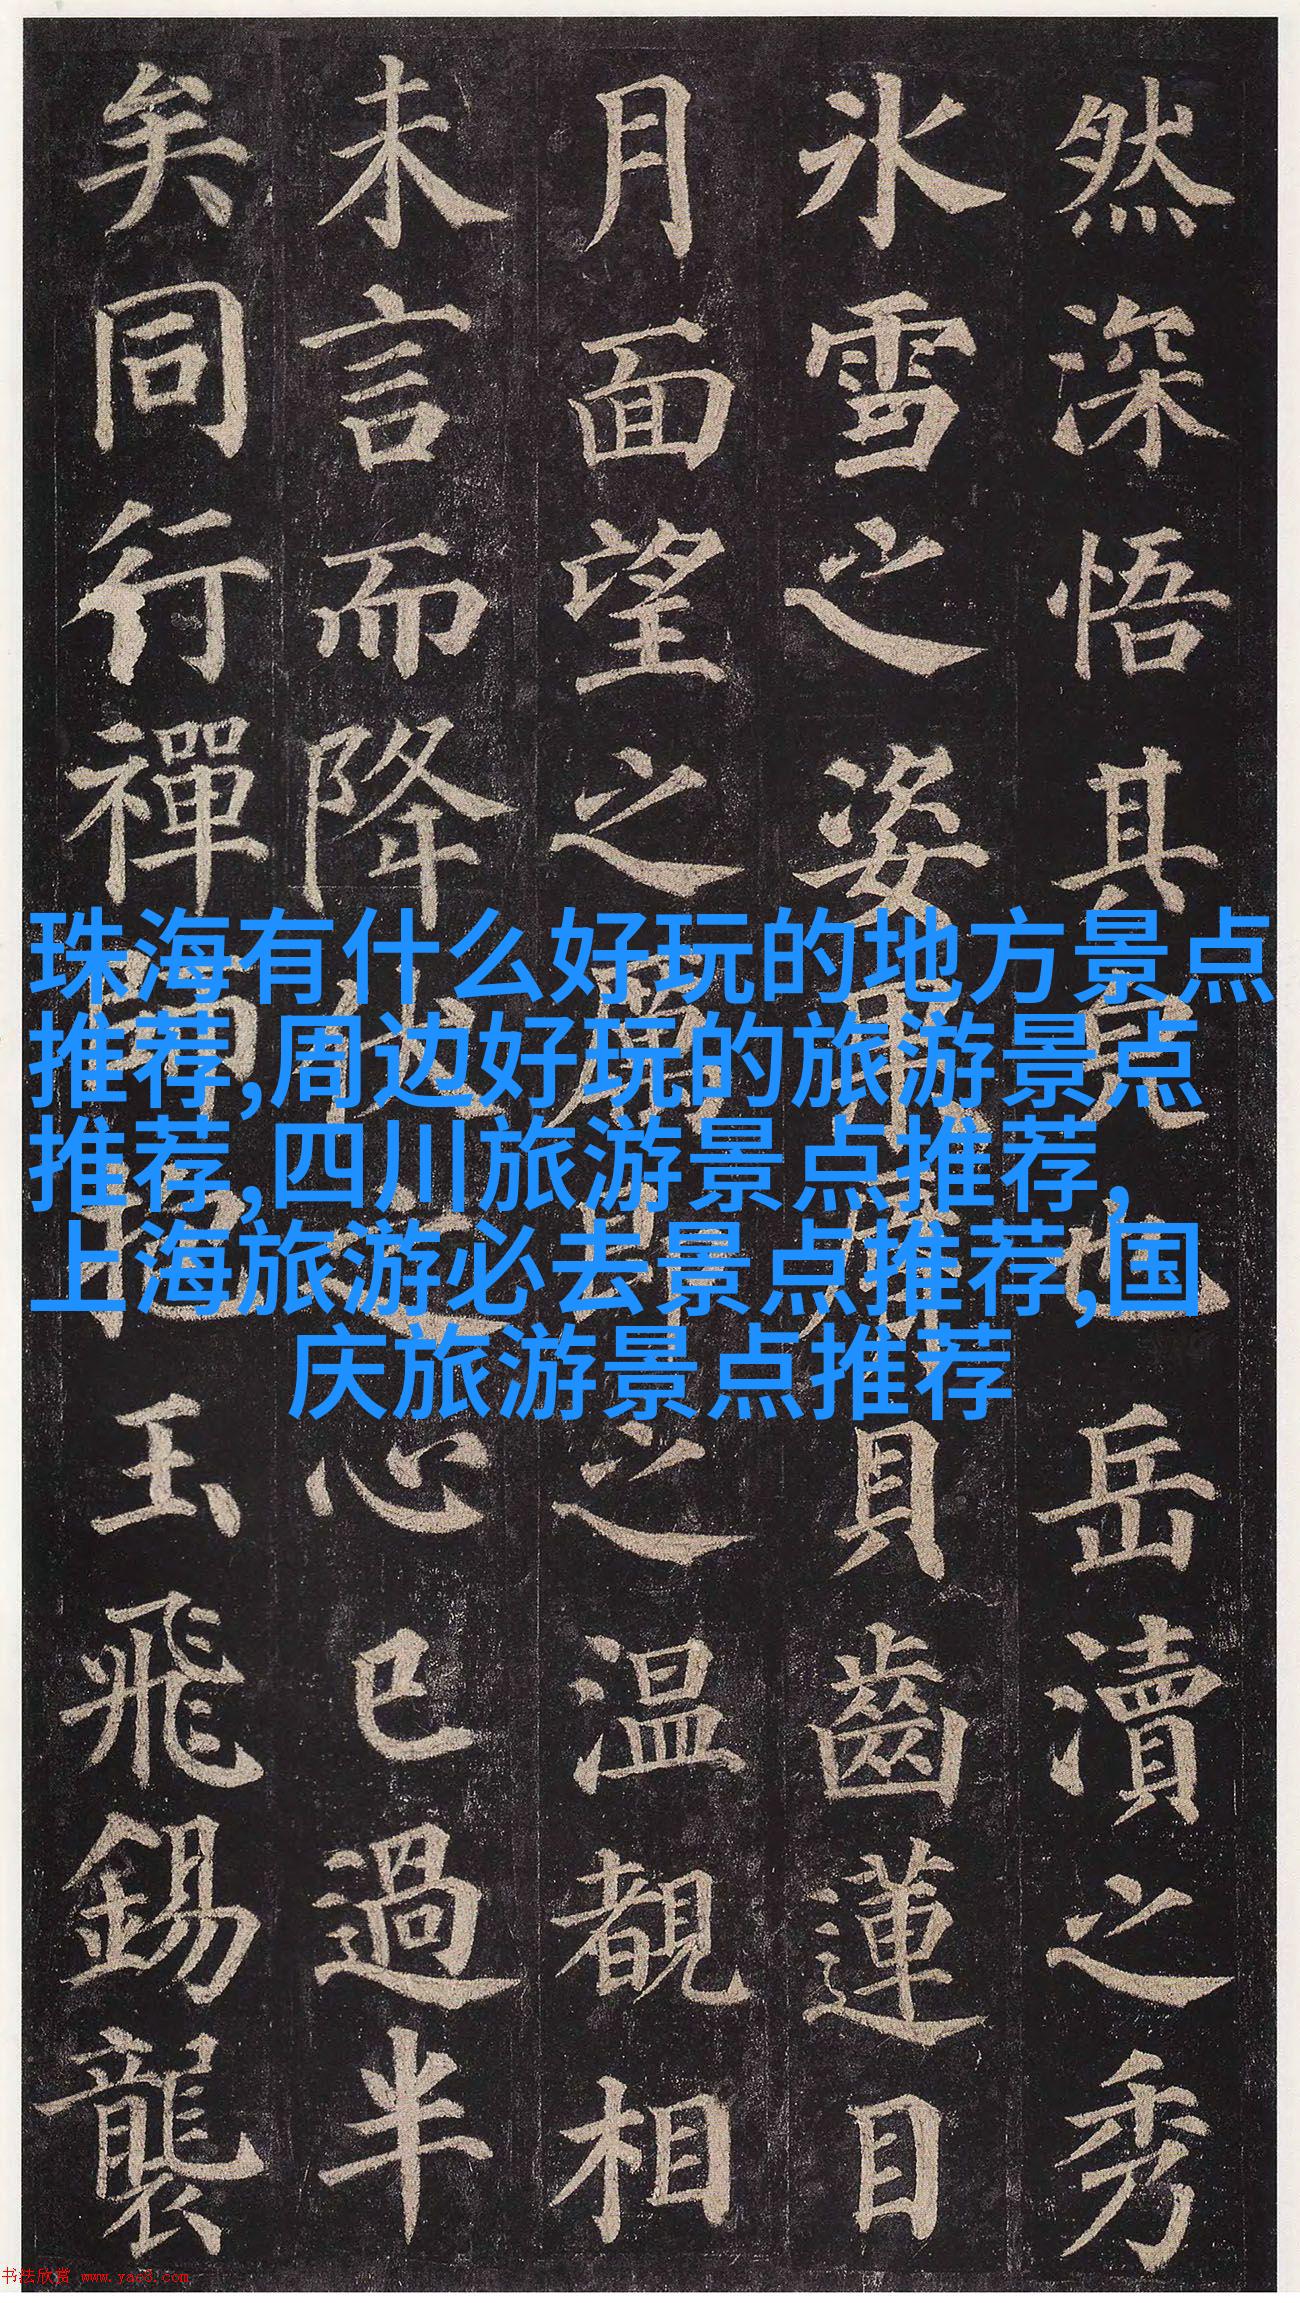 然深悟其
岳瀆之秀
氷雪之姿
貝齒蓮目
月面望之
之温覩相
未言而降
心已過半
矣同行禪
玉飛錫襲
珠海有什么好玩的地方景点
推荐,周边好玩的旅游景点
推荐,四川旅游景点推荐,
上海旅游必去景点推荐,国
庆旅游景点推荐
书法欣赏 www.yac8.com